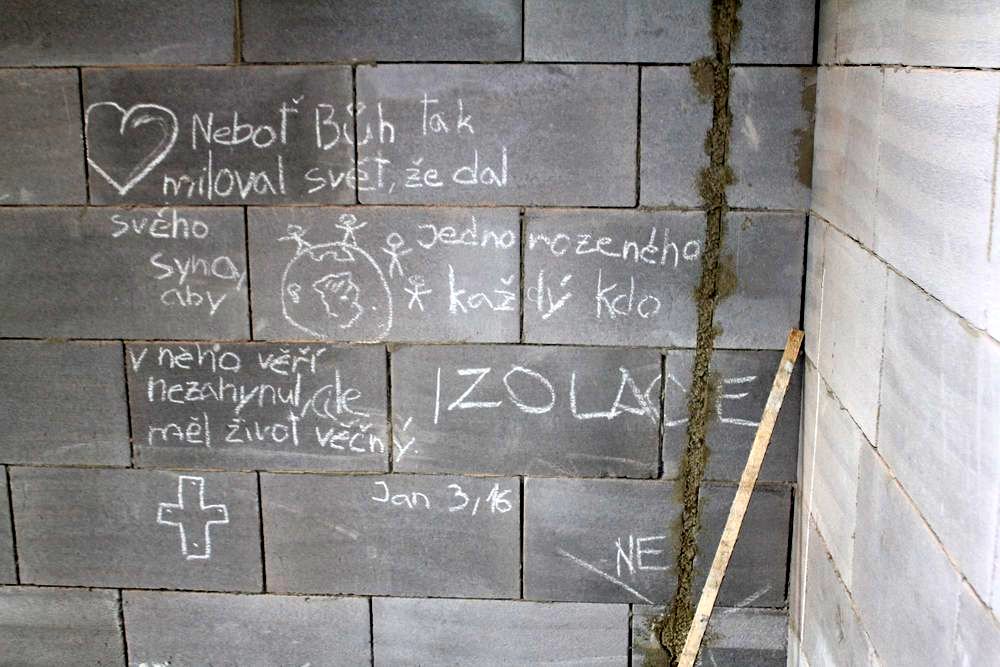 Neboť Bůh tak
miloval svět, že dal
svého
syna,
aby
jednorozeného
každý kdo
v něho věří
nezahynul, ale
měl život věčný.
IZOLACE
Jan 3,16
NE